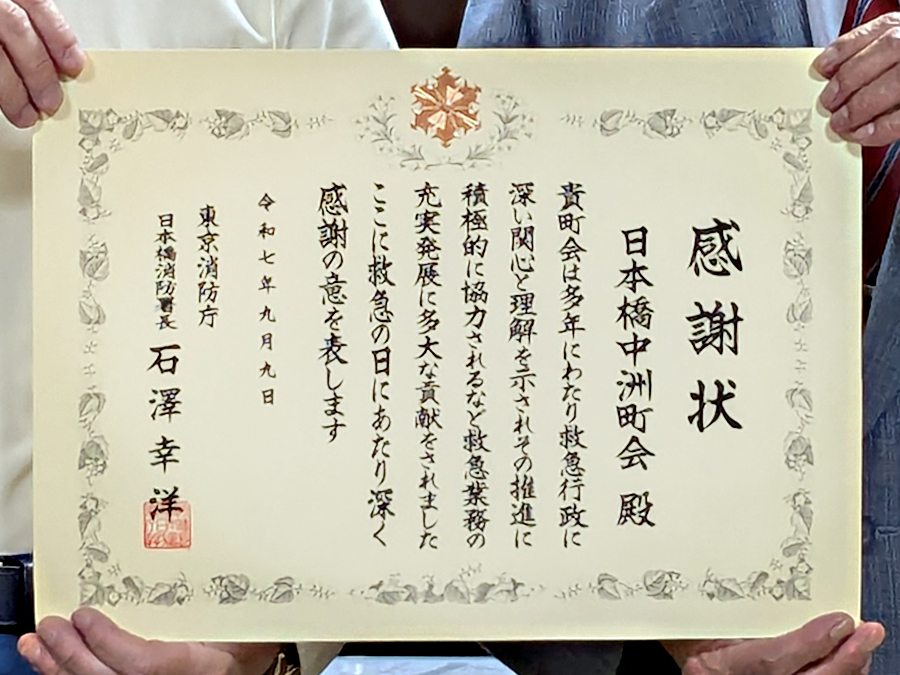 感謝状
日本橋中洲町会 殿
貴町会は多年にわたり救急行政に
深い関心と理解を示されその推進に
積極的に協力されるなど救急業務の
充実発展に多大な貢献をされました
ここに救急の日にあたり深く
感謝の意を表します
令和七年九月九日
東京消防庁
日本橋消防署長 石澤幸洋